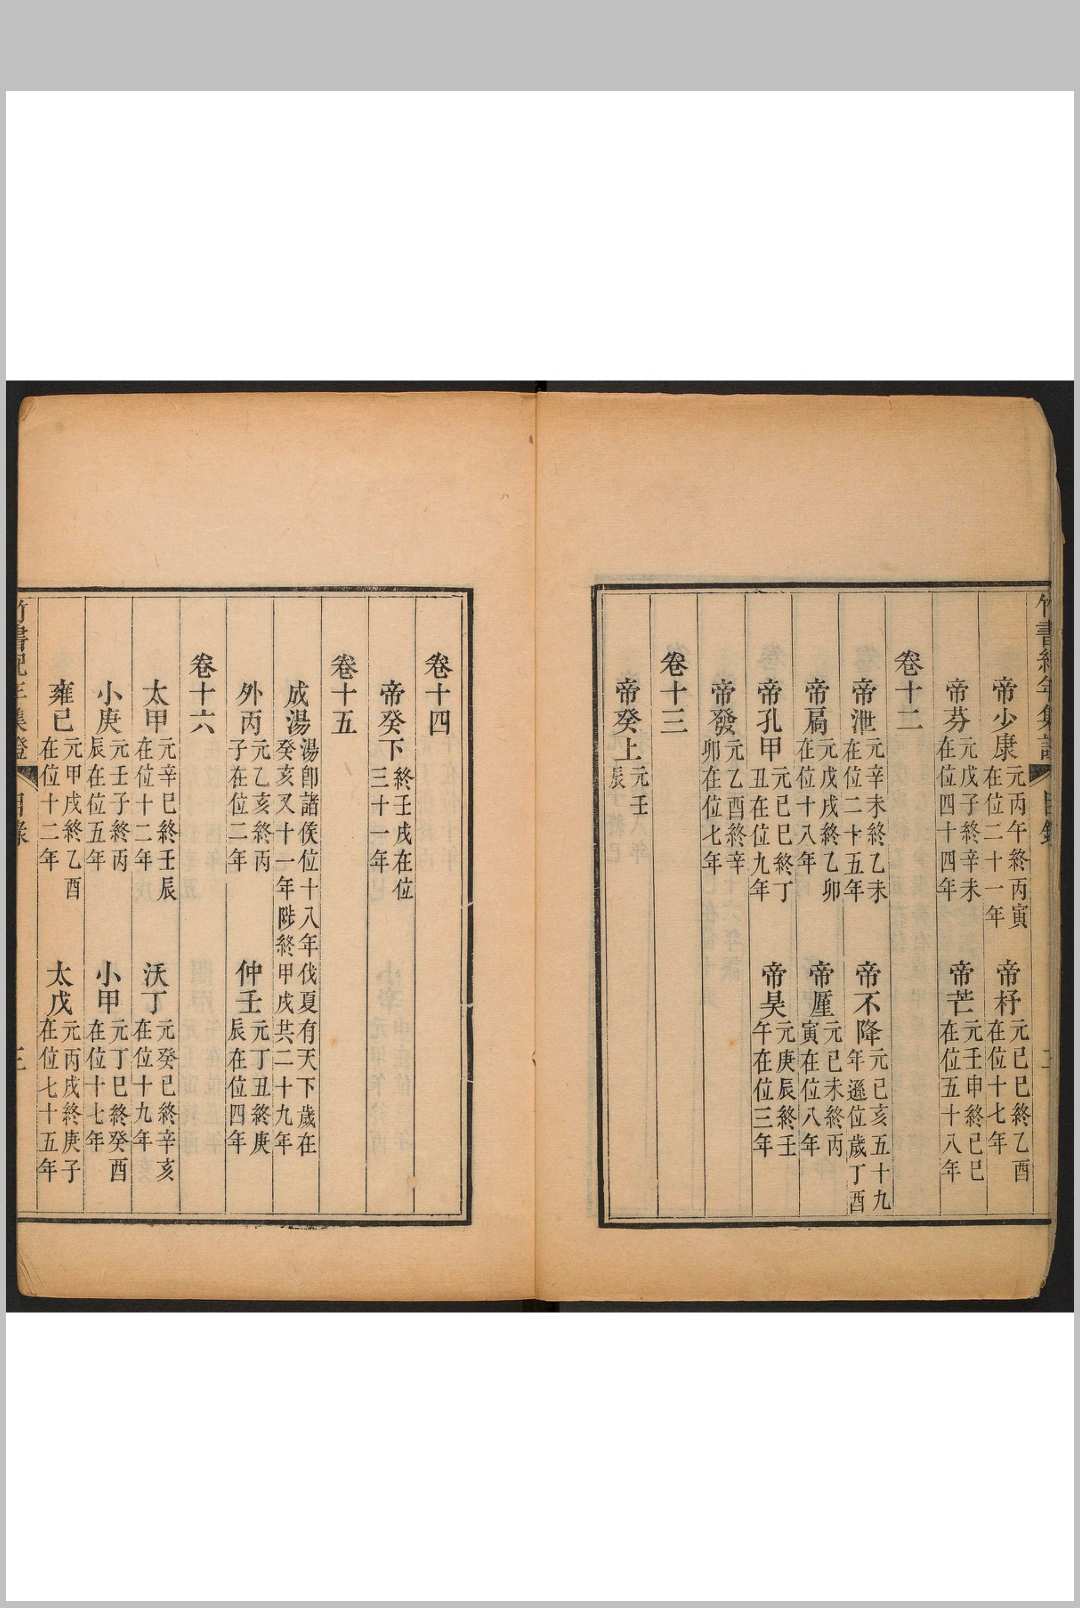 竹書紀年集證 目錄 二
帝少康元丙午終丙寅在位二十一年 帝杼元己巳終乙酉在位十七年
帝芬元戊子終辛未在位四十四年 帝芒元壬申終己巳在位五十八年
卷十二
帝泄元辛未終乙未在位二十五年 帝不降元己亥五十九年遜位歲丁酉
帝扃元戊戌終乙卯在位十八年 帝廑元己未終丙寅在位八年
帝孔甲元己巳終丁丑在位九年 帝昊元庚辰終壬午在位三年
帝發元乙酉終辛卯在位七年
卷十三
帝癸上元壬辰
卷十四
帝癸下終壬戌在位三十一年
卷十五
成湯湯卽諸侯位十八年伐夏有天下歲在癸亥又十一年陟終甲戌共二十九年
外丙元乙亥終丙子在位二年 仲壬元丁丑終庚辰在位四年
卷十六
太甲元辛巳終壬辰在位十二年 沃丁元癸巳終辛亥在位十九年
小庚元壬子終丙辰在位五年 小甲元丁巳終癸酉在位十七年
雍己元甲戌終乙酉在位十二年 太戊元丙戌終庚子在位七十五年
竹書紀年集證 目錄 三